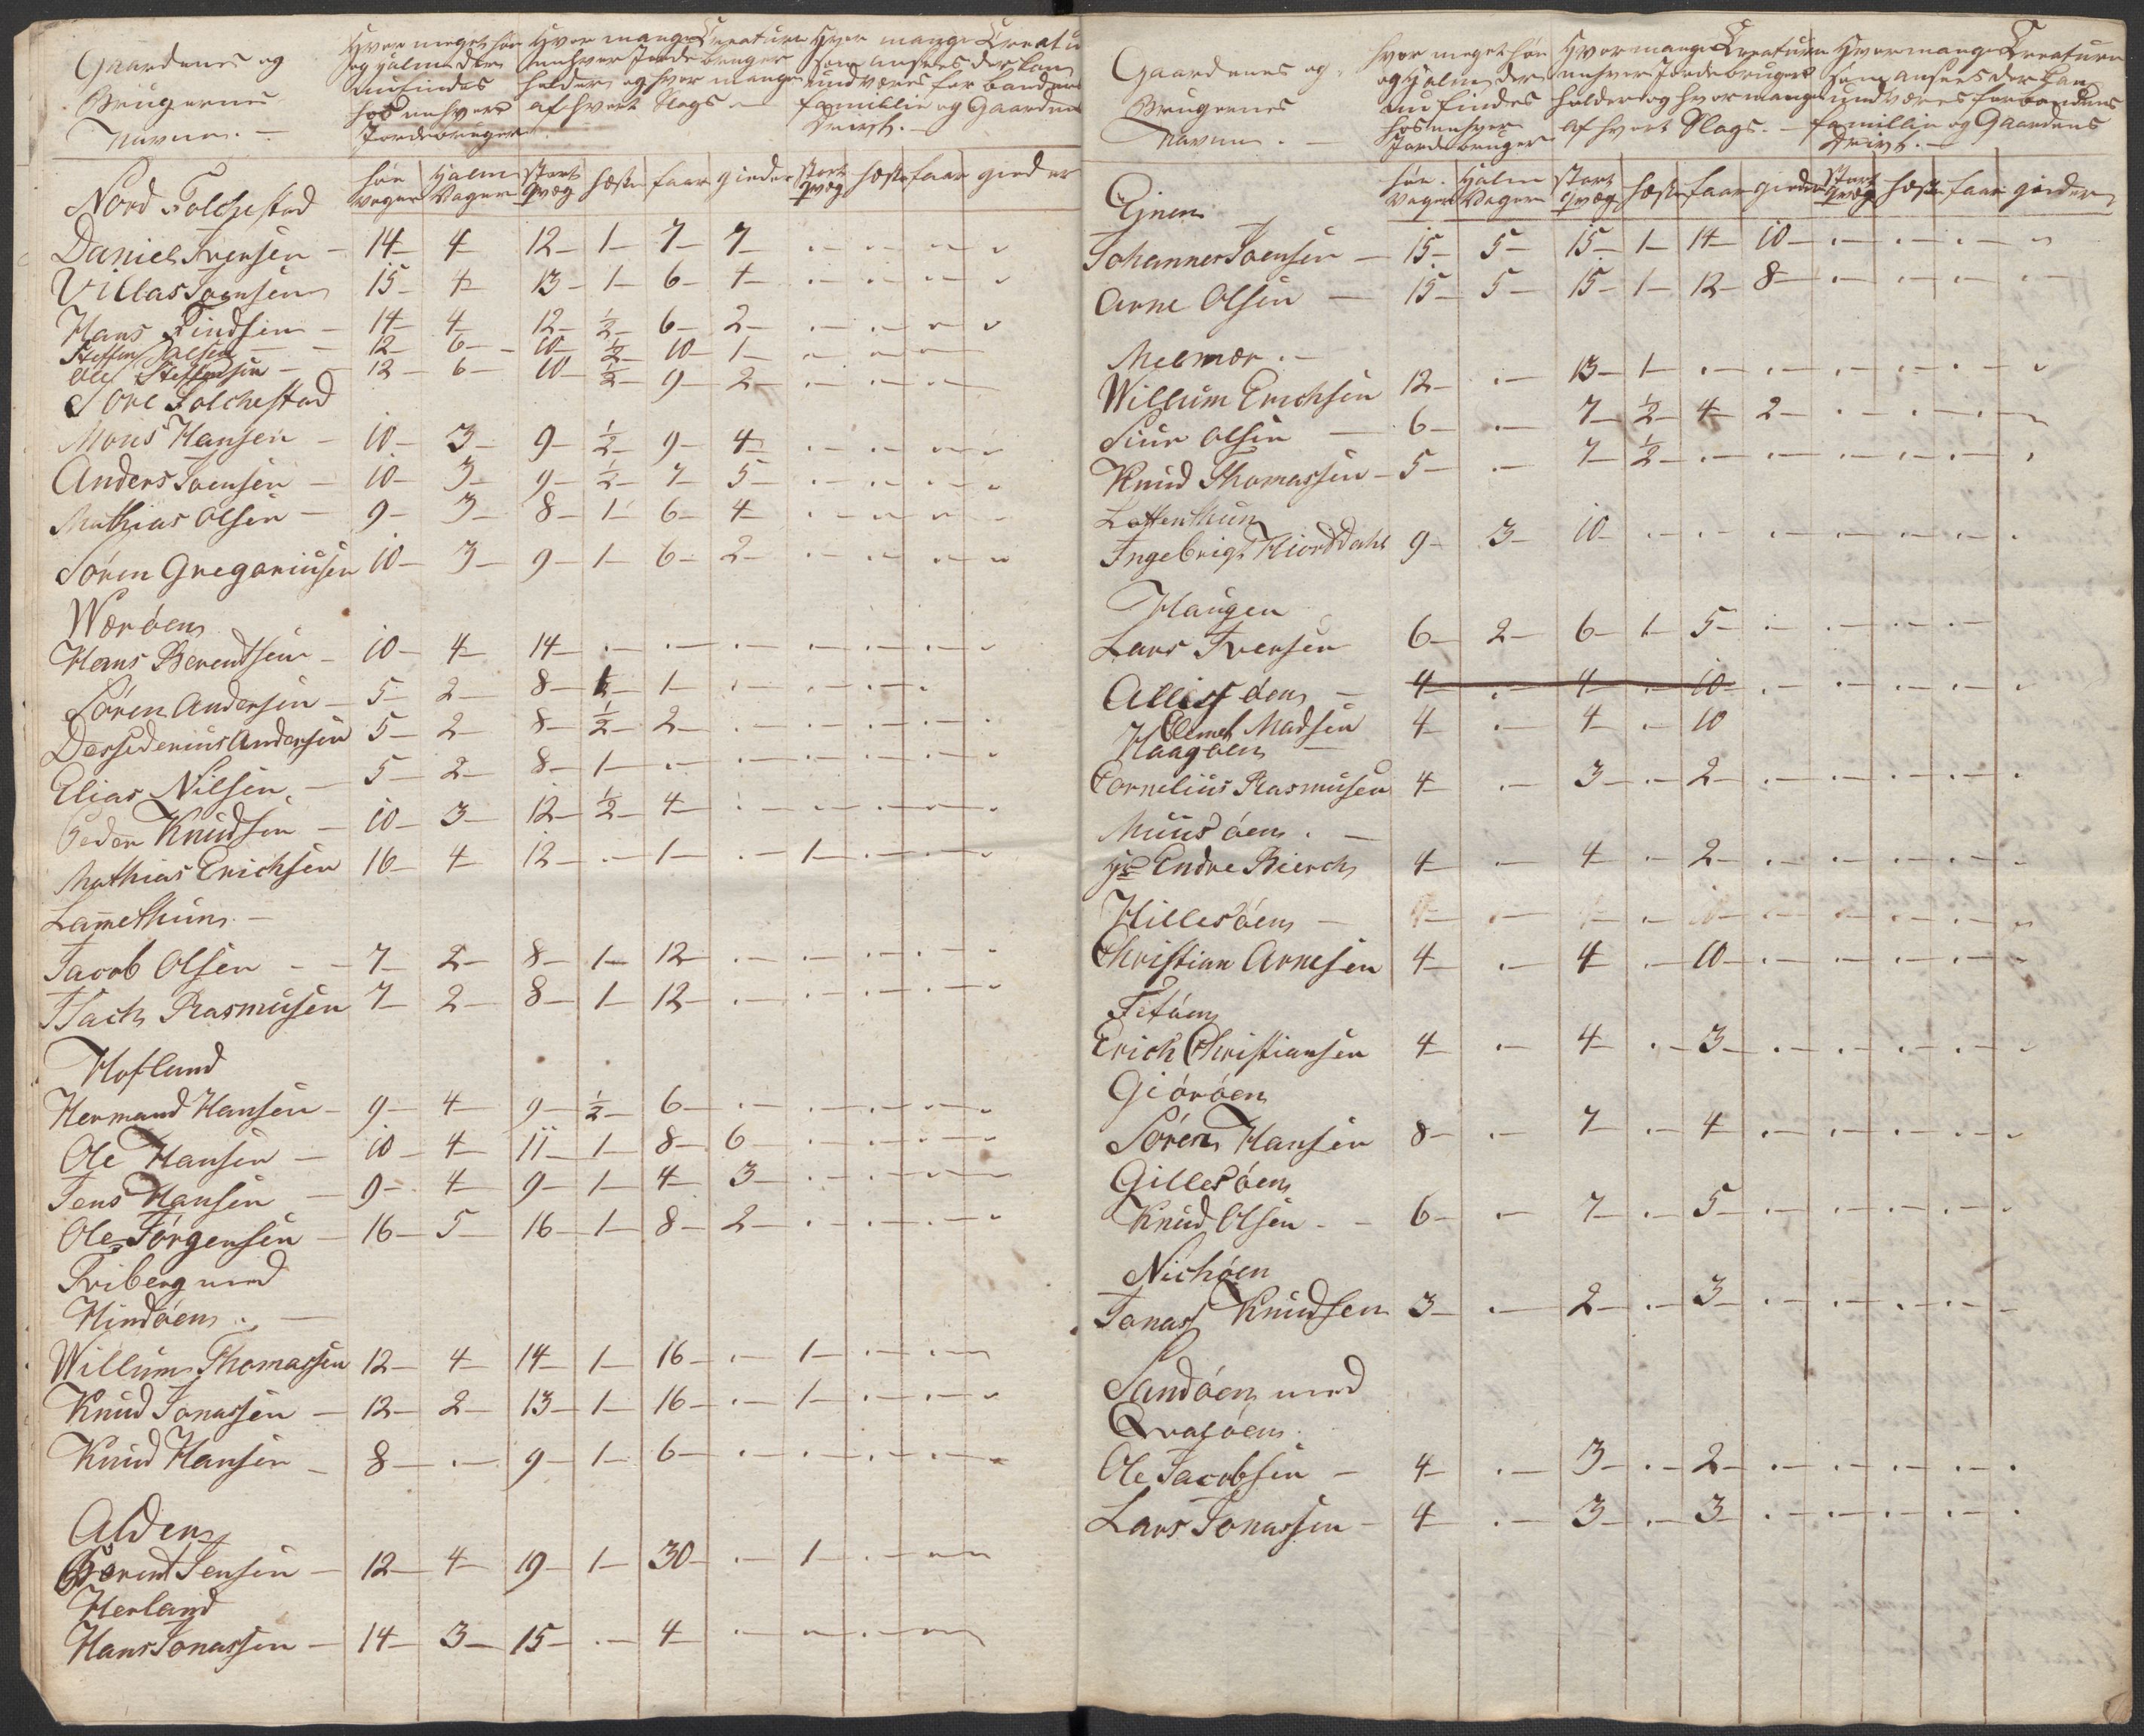 Gaardenes og
Brugernes
Navne. —
Hvor meget höe
og halm der
nu findes
hos enhver
Jordebruger
Hvor mange Creature
enhver Jordebruger
holder og hvor mange
af hvert Slags —
Hvor mange Creatu
som ansees der kan
undværes for bondens
familie og Gaardens
Drivt. —
höe Vager | Halm Vager | stort qvæg | hæste | faar | gieder | stort qvæg | hæste | faar | gieder
Nord Folchestad
Daniel Iversen — 14 — 4 — 12 — 1 — 7 — 7 — . — . — . — .
Villas Ivensen 15 — 4 — 13 — 1 — 6 — 4 — . — . — . — .
Hans Findsen — 14 — 4 — 12 — ½ — 6 — 2 — . — . — . — .
Steffen Olsen — 12 — 6 — 10 — ½ — 10 — 1 — . — . — . —
Ole Steffensen — 12 — 6 — 10 — ½ — 9 — 2 — . — . — . —
Söre Folchestad
Mons Hansen — 10 — 3 — 9 — ½ — 9 — 4 — . — . — . — .
Anders Ivensen — 10 — 3 — 9 — ½ — 7 — 5 — . — . — . — .
Mathias Olsen — 9 — 3 — 8 — 1 — 6 — 4 — . — . — . — .
Sören Gregoriusen 10 — 3 — 9 — 1 — 6 — 2 — . — . — . — .
Værøen
Hans Berentsen — 10 — 4 — 14 — . — . — . — . — . — . — .
Sören Andersen — 5 — 2 — 8 — ½ — 1 — . — . — . — .
Dessiderius Andersen 5 — 2 — 8 — ½ — 2 — . — . — . — . — .
Elias Nilsen — 5 — 2 — 8 — 1 — . — . — . — . — . — .
Peder Knudsen — 10 — 3 — 12 — ½ — 4 — . — . — . — . — .
Mathias Erichsen 16 — 4 — 12 — . — 1 — . — 1 — . — . — .
Lammethun —
Jacob Olsen — 7 — 2 — 8 — 1 — 12 — . — . — . — . — .
Isach Rasmusen 7 — 2 — 8 — 1 — 12 — . — . — . — . — .
Hofland
Hermand Hansen — 9 — 4 — 9 — ½ — 6 — . — . — . — . — .
Ole Hansen — 10 — 4 — 11 — 1 — 8 — 6 — . — . — . — .
Jens Hansen — 9 — 4 — 9 — 1 — 4 — 3 — . — . — . — .
Ole Jörgensen — 16 — 5 — 16 — 1 — 8 — 2 — . — . — . — .
Friberg med
Hindöen . —
Willum Thomassen 12 — 4 — 14 — 1 — 16 — . — 1 — . — . — .
Knud Jonassen — 12 — 2 — 13 — 1 — 16 — . — 1 — . — . — .
Knud Hansen — 8 — . — 9 — 1 — 6 — . — . — . — . — .
Alden
Berent Jensen — 12 — 4 — 19 — 1 — 30 — . — 1 — . — . — .
Herland
Hans Jonassen — 14 — 3 — 15 — . — 4 — . — . — . — . —
Gaardenes og
Brugernes
Navne . —
hvor meget höe
og Halm der
nu findes
hos enhver
Jordebruger
Hvor mange Creature
enhver Jordebruger
holder og hvor mange
af hvert Slags. —
Hvor mange Creature
som ansees der kan
undværes for bondens
familie og Gaardens
Drivt. —
höe. Vager | Halm Vager | stort qvæg | hæste | faar | gieder | stort qvæg | hæste | faar | gieder
Ejnen
Johannes Ivensen — 15 — 5 — 15 — 1 — 14 — 10 — . — . — . — .
Arne Olsen — 15 — 5 — 15 — 1 — 12 — 8 — . — . — . — .
Melvær . —
Willum Erichsen 12 — . — 13 — 1 — . — . — . — . — . — .
Siur Olsen — 6 — . — 7 — ½ — 4 — 2 — . — . — . — .
Knud Thomassen — 5 — . — 7 — ½ — . — . — . — . — . — .
Loftenthun
Ingebrigt Hiorddahl 9 — 3 — 10 — . — . — . — . — . — . — .
Haugen
Lars Iversen 6 — 2 — 6 — 1 — 5 — . — . — . — . —
Alleröen — 4 — . — 4 — . — 10 — . — . — . — . — .
Clemet Madsen 4 — . — 4 — . — 10
Haagöen —
Cornelius Rasmusen 4 — . — 3 — . — 2 — . — . — . — . — .
Muusöen . —
Endre Bierch 4 — . — 4 — . — 2 — . — . — . — . — .
Hillesöen —
Christian Arnesen 4 — . — 4 — . — 10 — . — . — . — . — .
Fetöen
Erich Christiansen 4 — . — 4 — . — 3 — . — . — . — . — .
Giöröen
Sören Hansen 8 — . — 7 — . — 4 — . — . — . — . — .
Gillesöen
Knud Olsen — 6 — . — 7 — . — 5 — . — . — . — . — .
Nichöen
Jonas Knudsen 3 — . — 2 — . — 3 — . — . — . — . — .
Sandöen med
Qvalöen
Ole Jacobsen — 4 — . — 3 — . — 2 — . — . — . — . — .
Lars Jonassen — 4 — . — 3 — . — 3 — . — . — . — . — .